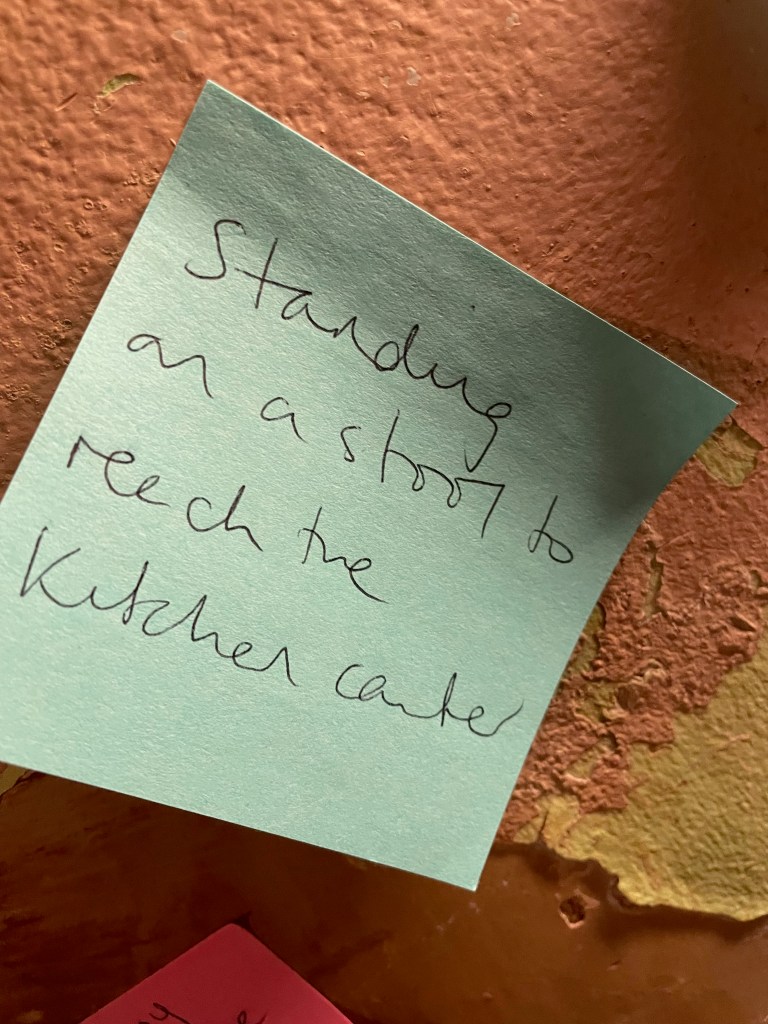 Standing
on a stool to
reach the
Kitchen counter